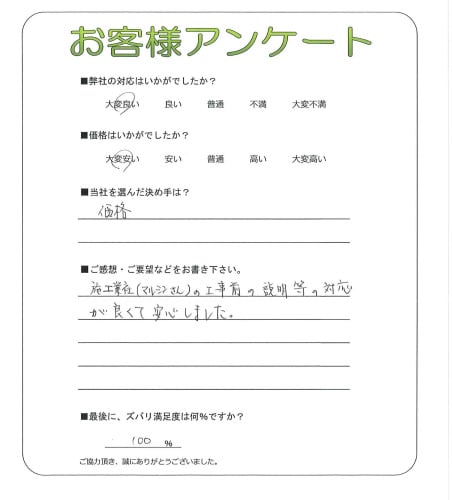 お客様アンケート
■弊社の対応はいかがでしたか?
大変良い 良い 普通 不満 大変不満
■価格はいかがでしたか?
大変安い 安い 普通 高い 大変高い
■当社を選んだ決め手は?
価格
■ご感想・ご要望などをお書き下さい。
施工業社(マルシンさん)の工事前の説明等の対応
が良くて安心しました。
■最後に、ズバリ満足度は何%ですか?
100 %
ご協力頂き、誠にありがとうございました。